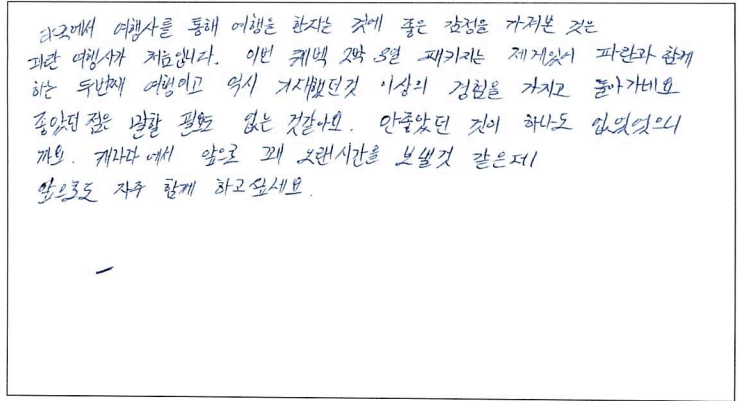 타국에서 여행사를 통해 여행을 한다는 것에 좋은 감정을 가져본 것은
파란 여행사가 처음입니다. 이번 퀘벡 2박 3일 패키지는 제게있어 파란과 함께
하는 두번째 여행이고 역시 기대했던것 이상의 경험을 가지고 돌아가네요
좋았던 점은 말할 필요도 없는 것같아요. 안좋았던 것이 하나도 없었었으니
까요. 캐나다에서 앞으로 꽤 오랜시간을 보낼것 같은데
앞으로도 자주 함께 하고싶네요.